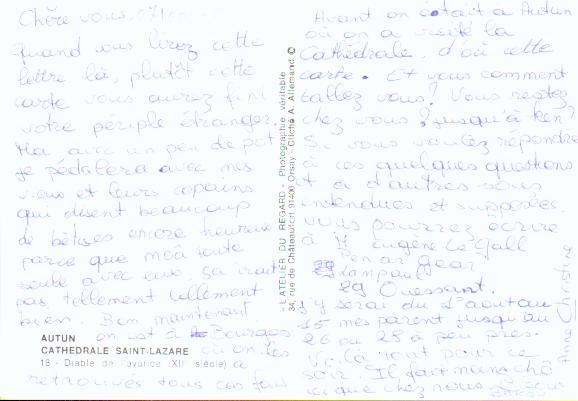 Chère vous.
quand vous lirez cette
lettre là, plutôt cette
carte vous aurez fini
votre périple étranger.
Ma avec un peu de pot
je pédalera avec mes
vieux et leurs copains
qui disent beaucoup
de bêtises encore heureux
parce que moâ toute
seule avec eux, sa irait
pas tellement tellement
bien. Bon maintenant
on est à Bourges
où on les
a
retrouvés tous
AUTUN
CATHEDRALE SAINT-LAZARE
18 - Diable de l'avarice (XII siècle)
- L'ATELIER DU REGARD - Photographie véritable ©
34, rue de Châteaufort 91400 Orsay - Cliché A. Allemand
Avant on était a Autun
où on a visité la
Cathédrale, d'où cette
carte. Et vous comment
tallez vous? Vous restez
chez vous? jusqu'à
Si vous voulez répondre
à ces quelques questions
et à d'autres sous
intendues et supposées
vous pourrez écrire
à M Eugène Le Gall
Pen ar
Lampaul
29 Ouessant.
j'y serai du 1° aout au
15 mes parent jusqu'au
26 ou 28 à peu près.
Voilà tout pour ce
soir. Il fait
ici que chez nous
Anne Christine